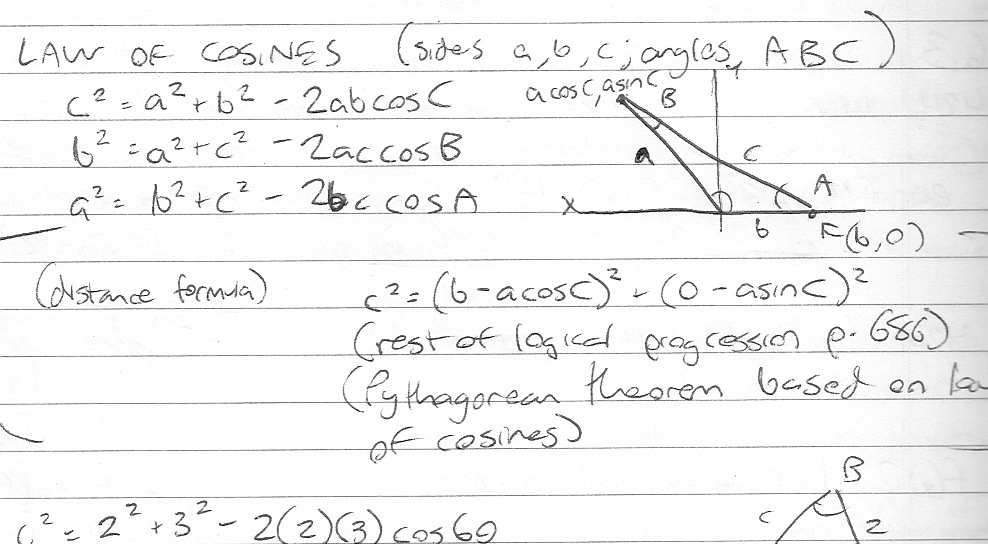 LAW OF COSINES (sides a, b, c; angles, A B C)
c² = a² + b² - 2ab cos C
b² = a² + c² - 2ac cos B
a² = b² + c² - 2bc cos A
y
a cos C, a sin C
B
a
c
A
x
b
(b, 0)
(distance formula)
c² = (b - a cos C)² - (0 - a sin C)²
(rest of logical progression p. 686)
(Pythagorean theorem based on la
of cosines)
B
c² = 2² + 3² - 2(2)(3) cos 60
c
2